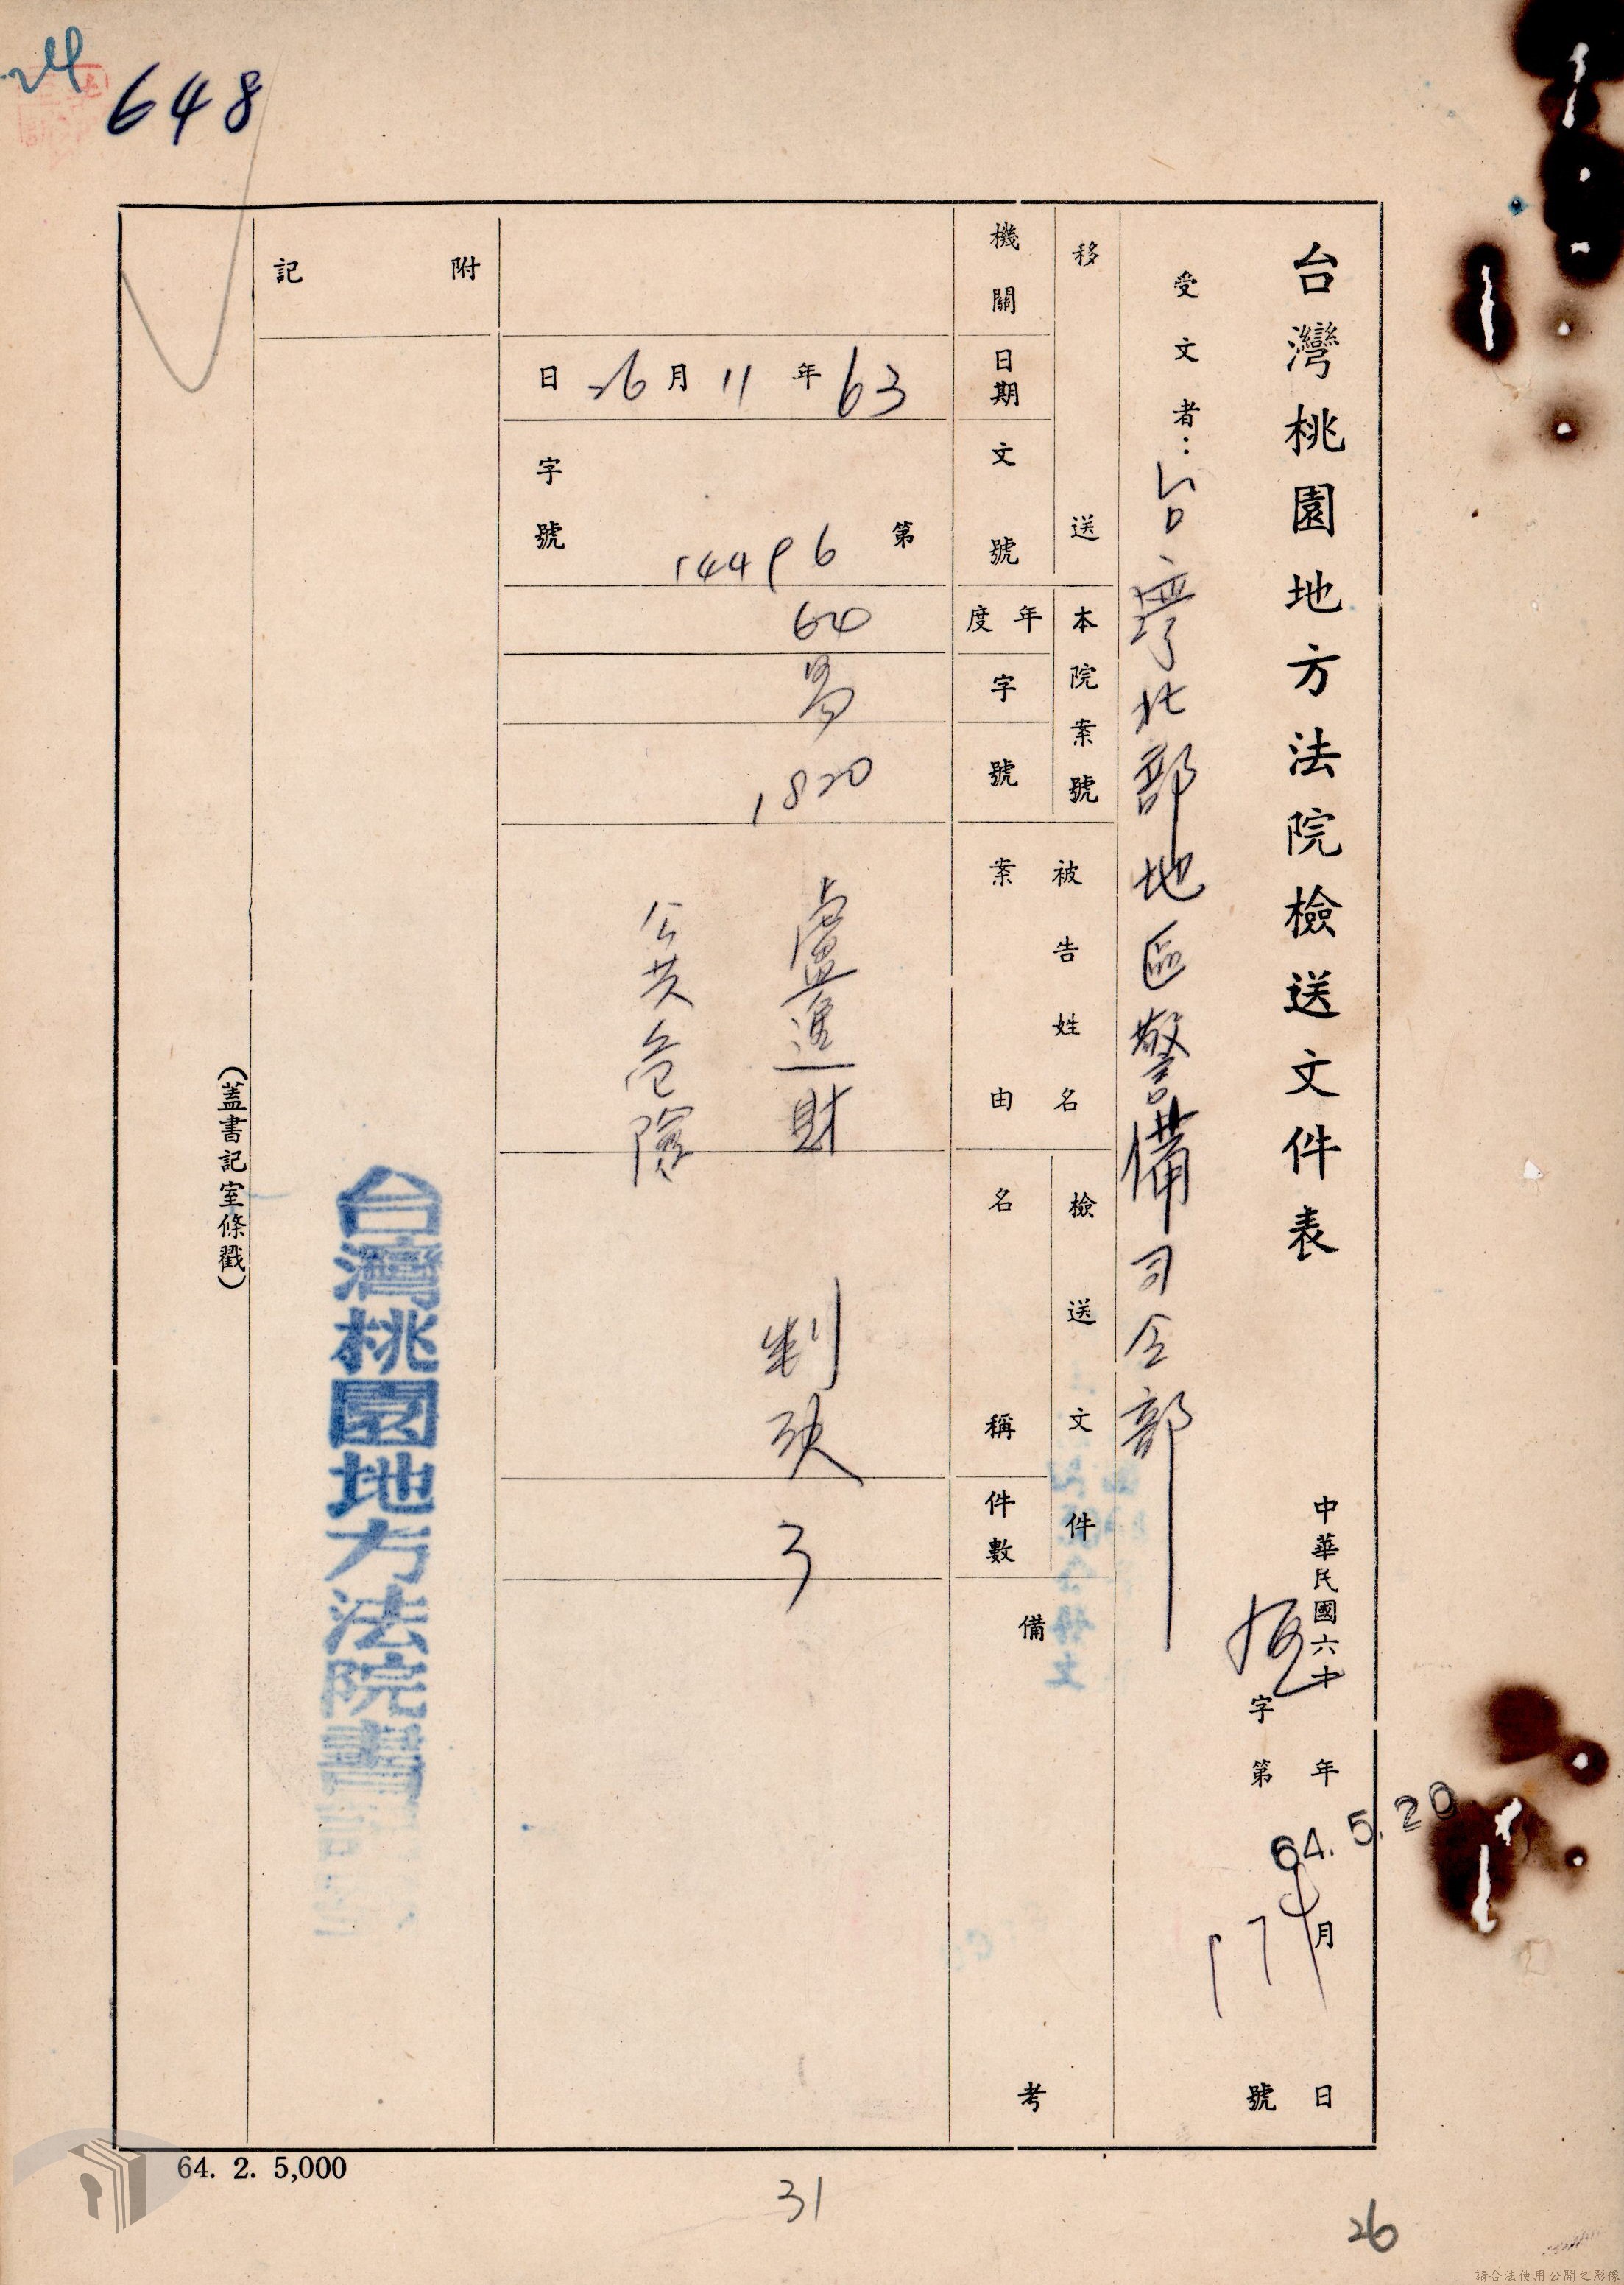 24
648
台灣桃園地方法院檢送文件表
中華民國六十 年 月 日
字第 號
64.5.20
受文者：台灣北部地區警備司令部
移送
機關
日期
文號
本院案號
年度
字
號
被告姓名
案由
檢送文件
名稱
件數
備考
63年11月26日
第14496
字號
64
易
1820
盧進財
公共危險
判決
3
附記
台灣桃園地方法院書
（蓋書記室條戳）
64. 2. 5,000
31
26
請合法使用公開之影像